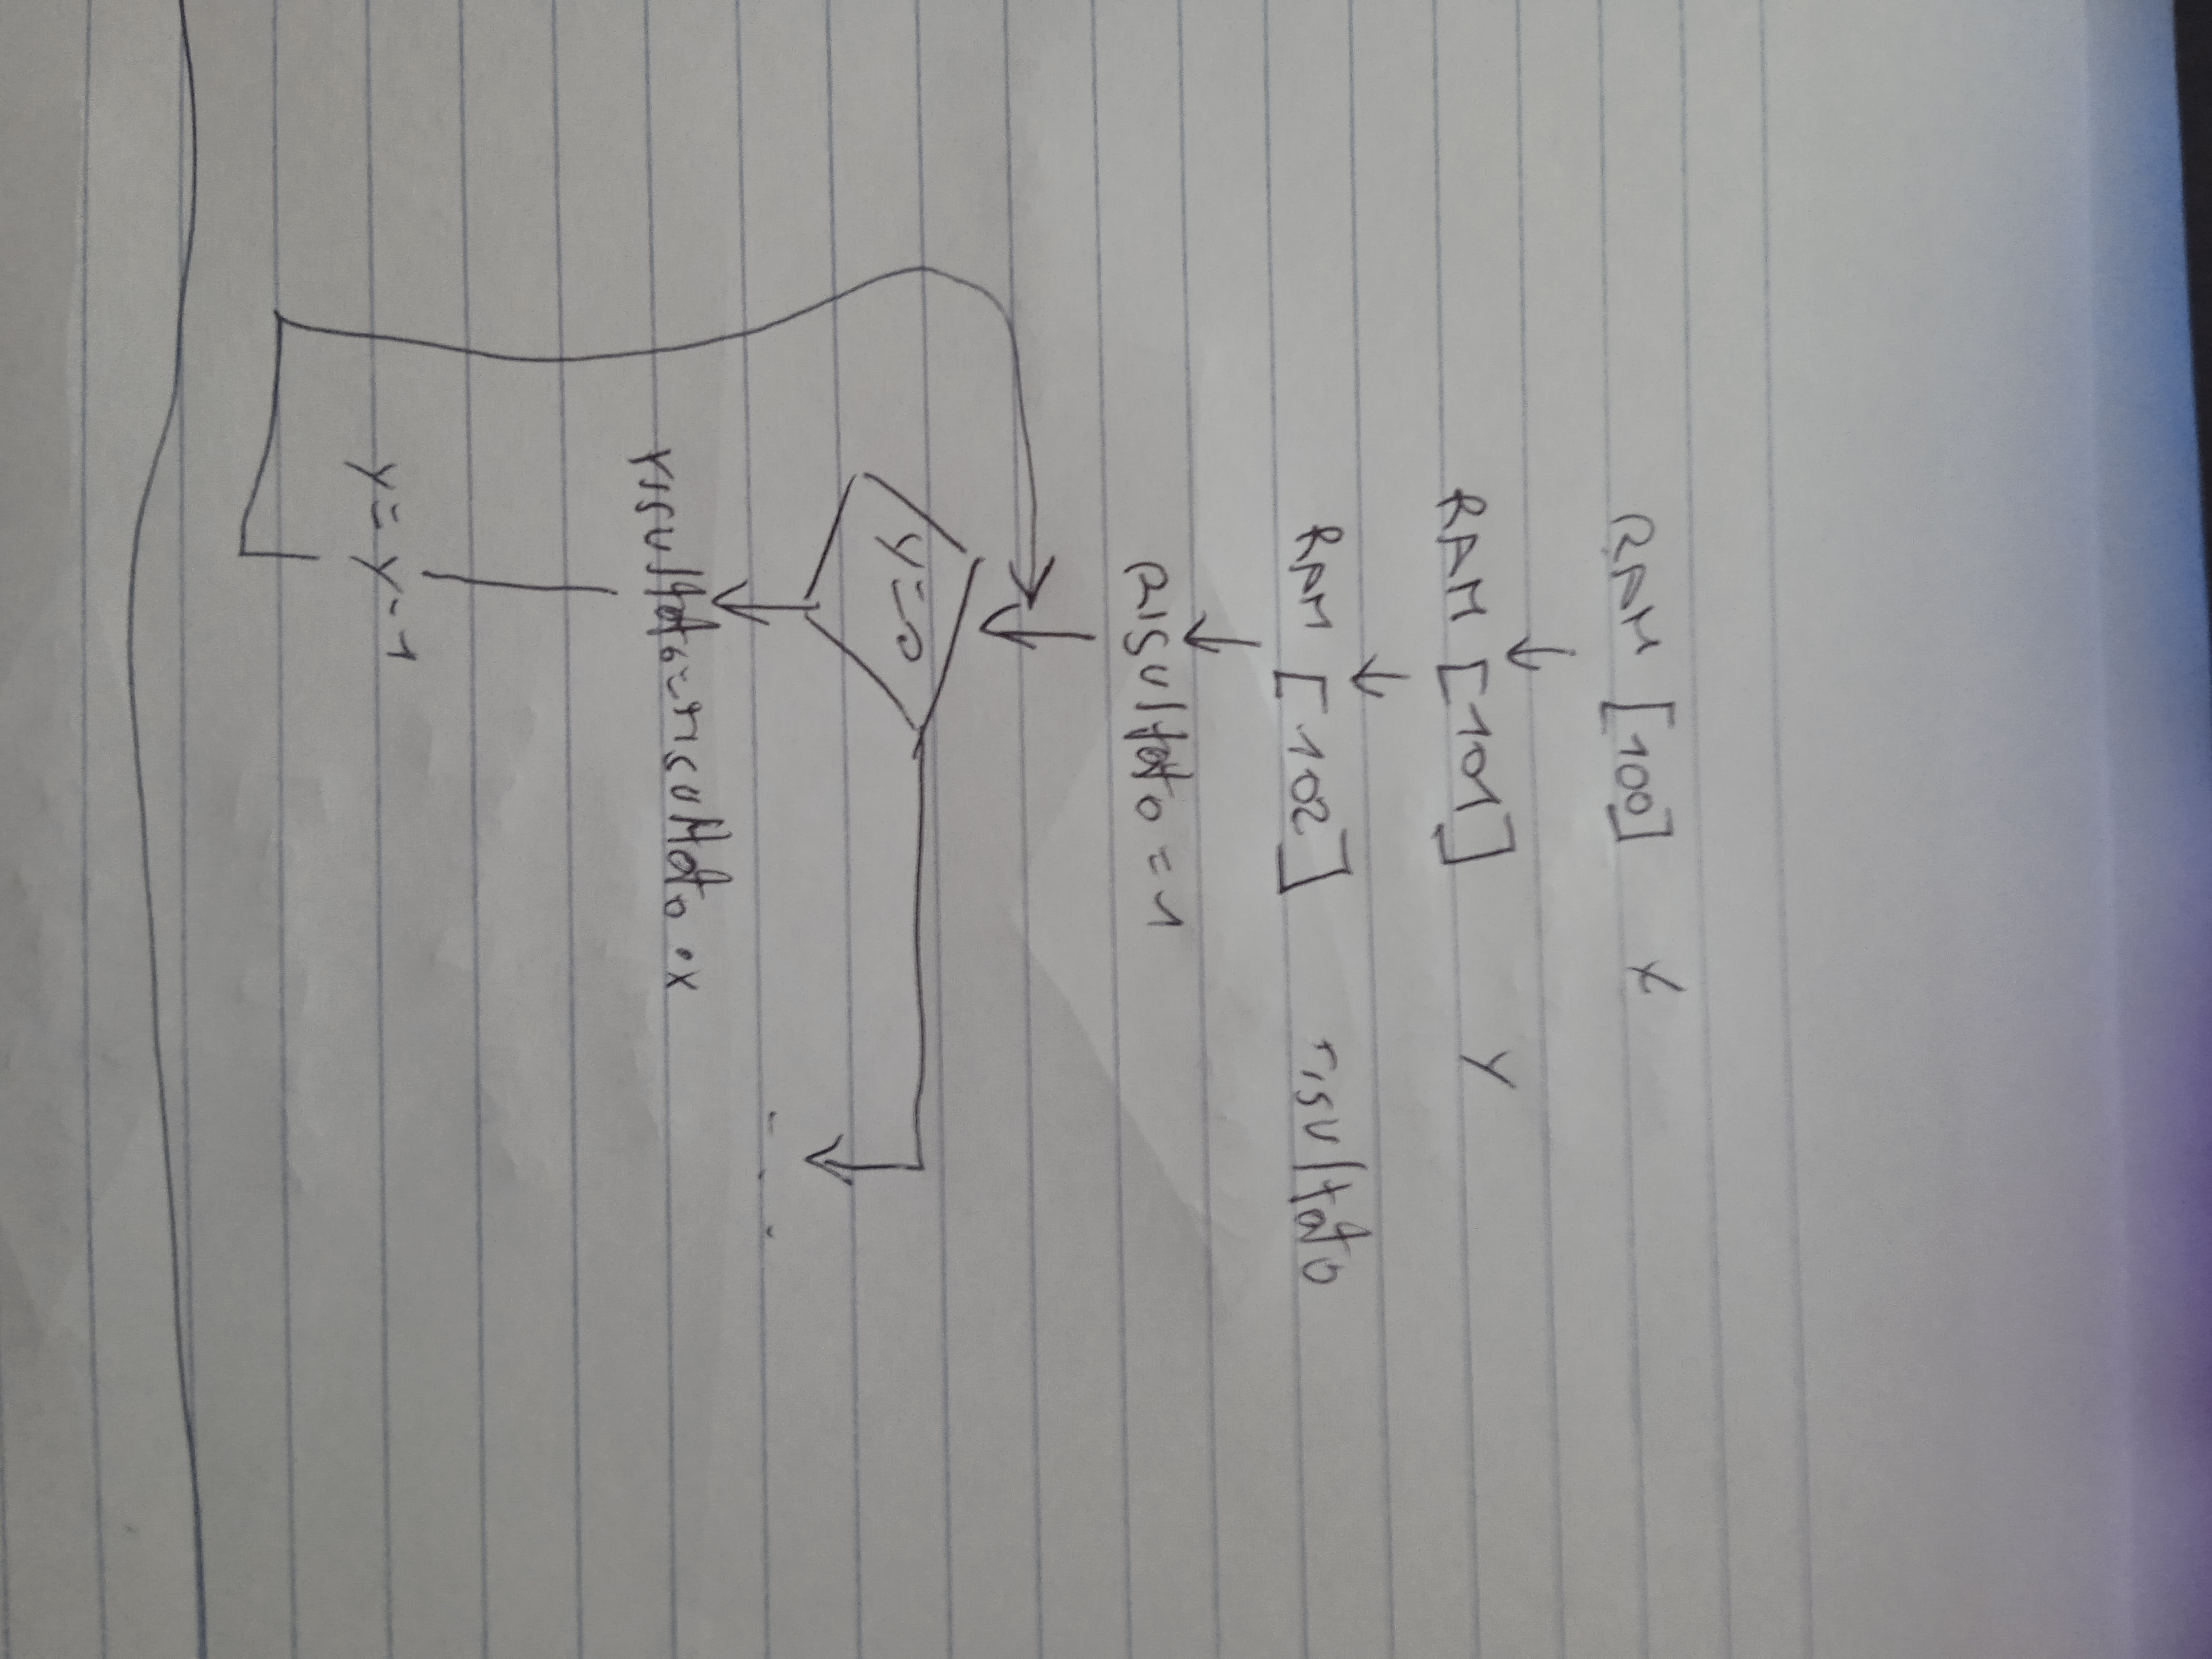 RAM [100] x
RAM [101] y
RAM [102] risultato
Risultato = 1
y=0
risultato=risultato • x
y = y - 1